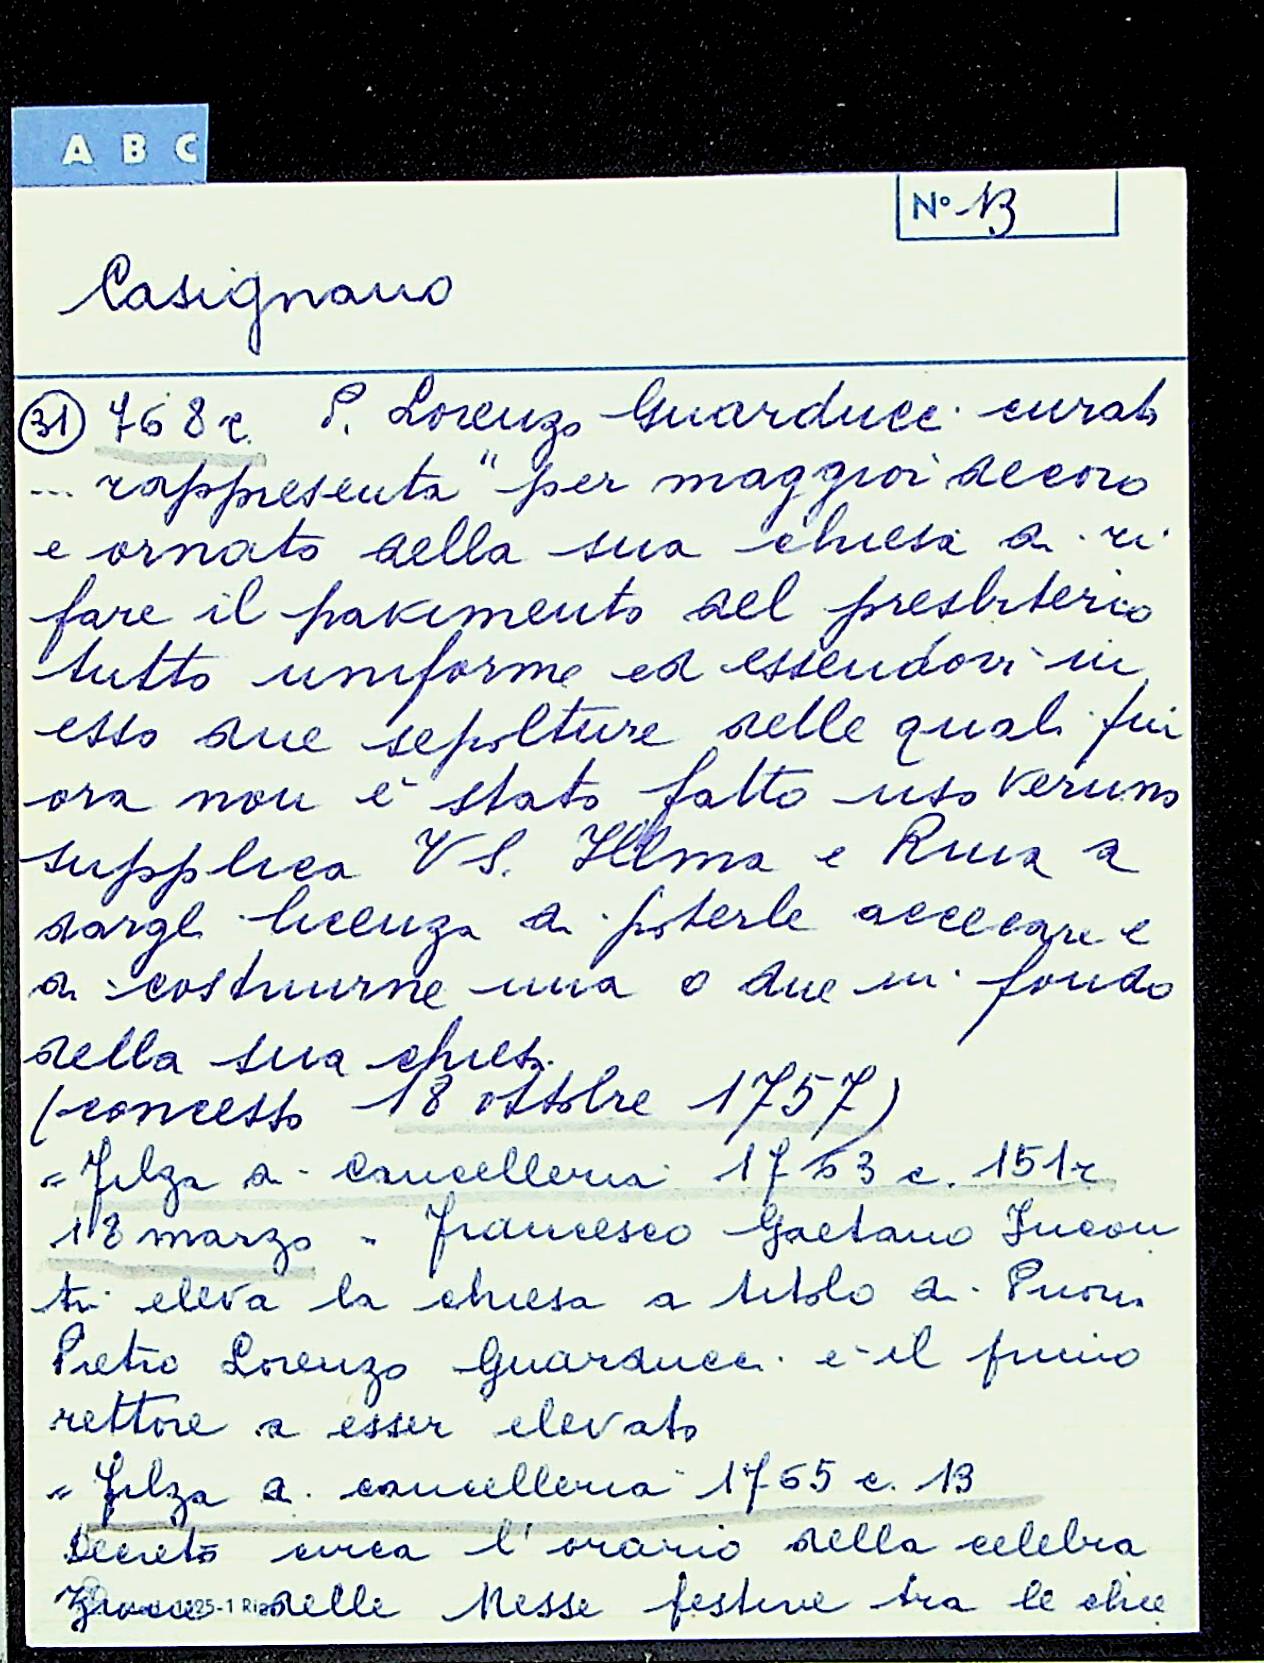 A B C
N° 13
Casignano
31 768 c. P. Lorenzo Guarducci curato
... rappresenta "per maggior decoro
e ornato della sua chiesa di ri
fare il pavimento del presbiterio
tutto uniforme ed essendovi in
esso due sepolture delle quali fin
ora non è stato fatto uso veruno
supplica VS. Illma e Rma a
dargli licenza di poterle accecare e
di costruirne una o due in fondo
della sua chiesa.
(concesso 18 ottobre 1757)
" Filza di Cancelleria 1763 c. 151r
18 marzo - Francesco Gaetano Incon
tri eleva la chiesa a titolo di Prioria
Pietro Lorenzo Guarducci è il primo
rettore a esser elevato
" Filza di cancelleria 1765 c. 13
Decreto circa l'orario della celebra
zione delle Messe festive tra le chie